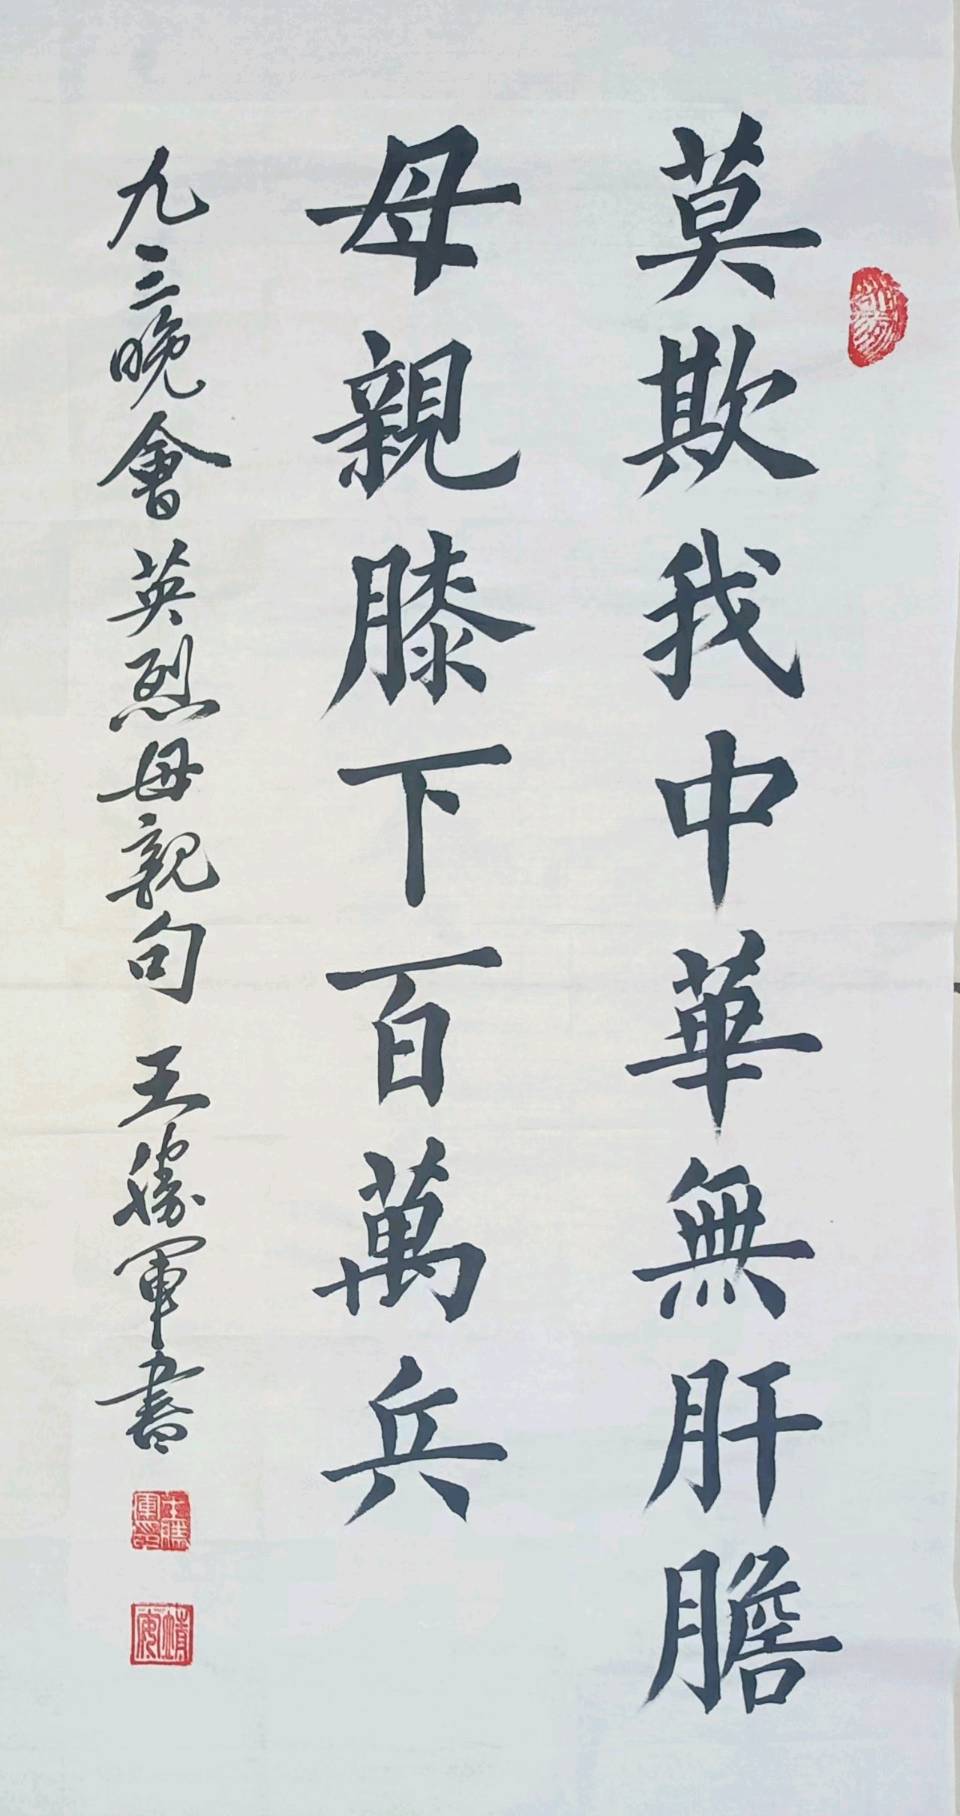 莫欺我中華無肝膽
母親膝下百萬兵
九三晚會英烈母親句 王勝軍書